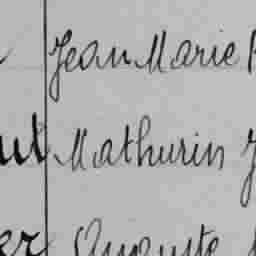 Jean Marie
Mathurin J
Auguste